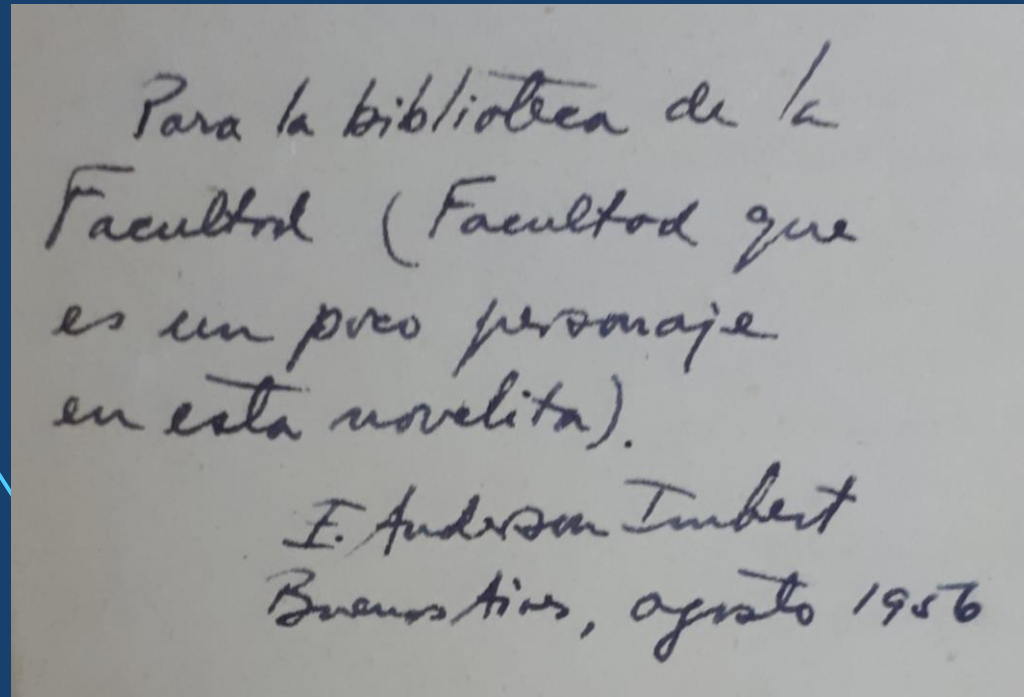 Para la biblioteca de la
Facultad (Facultad que
es un poco personaje
en esta novelita).
E. Anderson Imbert
Buenos Aires, agosto 1956